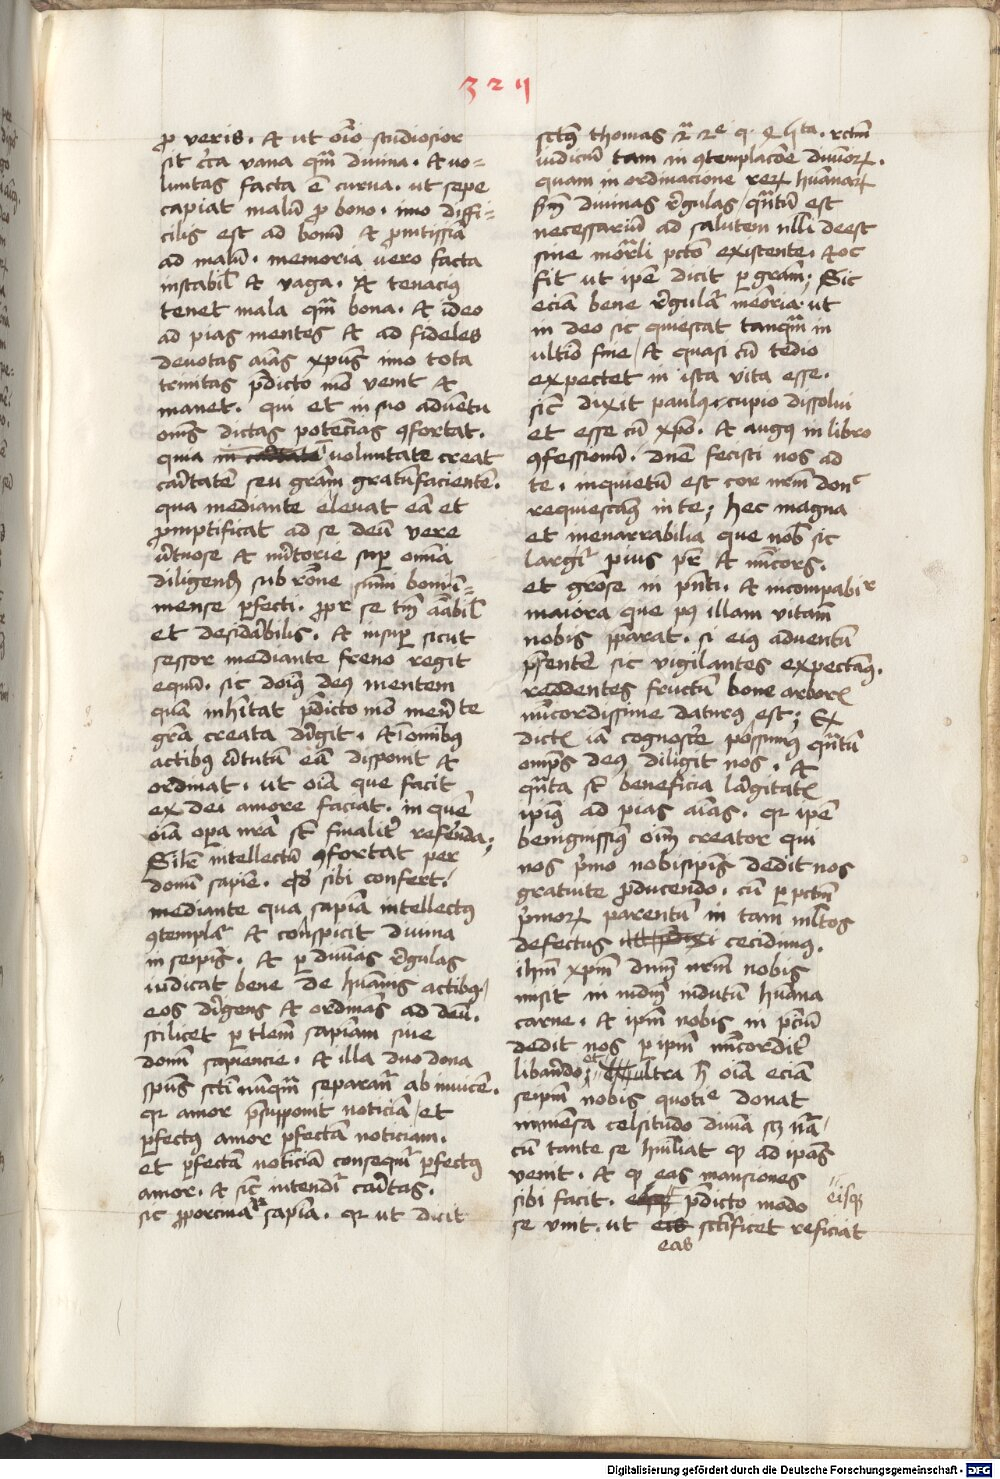 325
ꝓ veris . Et ut oīo studiosior
sit c̄ca vana qm̄ divina . Et vo=
luntas facta ē curva . ut sepe
capiat malū ꝓ bono . imo diffi=
cilis est ad bonū Et ꝓmtissīa
ad malū . memoria vero facta
instabil̄ Et vaga . Et tenaciꝰ
tenet mala qm̄ bona . Et ideo
ad pias mentes Et ad fideles
devotas aīas xp̄us imo tota
trinitas p̄dicto mō venit Et
manet . qui et in suo adventu
om̄s dictas potēcias ꝯfortat .
quia voluntate creat
caritatē seu grām gratūfacientē .
qua mediante elevat eā et
ꝓmptificat ad se deū vere
v̄tuose Et m̄itorie suꝑ omīa
diligend̄ sub rōne sūm̄ boni ī=
mense ꝑfecti . ꝓpr̄ se tm̄ aābil̄
et desidābilis . Et insuꝑ sicut
sessor mediante freno regit
equū . sic doīꝰ deꝰ mentem
quā inh̄itat p̄dicto mō men̄te
grā creata dīrigit . Et ī omībꝰ
actibꝰ v̄tutū eā disponit Et
ordinat . ut oīa que facit
ex dei amore faciat . in quē
oīa oꝑa nrā st̄ finalit̄ refer̄nda ;
Sil̄r intellectū ꝯfortat per
donū sapīe . qd̄ sibi confert .
mediante qua sapīa intellectꝰ
ꝯtemplat̄ Et conspicit divina
in seip̄is . Et ꝑ divīas r̄gulas
iudicat bene de hūanis actibꝰ /
eos dīrigens Et ordinās ad deū .
scilicet ꝑ tlem̄ sapīam sive
donū sapiencie . Et illa duo dona
spūs sctī nūnqm̄ separant̄ ab invicē .
qr amor p̄supponit noticiā / et
ꝑfectꝰ amor ꝑfectā noticiam .
et ꝑfectā noticiā consequit̄ ꝑfectꝰ
amor . Et sic̄ intendit̄ caritas .
sic ꝓporcīatr̄ sapīa . qr ut dicit
sctūs thomas rectū
iudiciū tam in ꝯtemplacōe divinoꝝ .
quam in ordinacione reꝝ hūanaꝝ
scd̄m divinas r̄gulas / qn̄tū est
necessariū ad salutem nlli deest
sine mor̄li pctō existente . Et oc
fit ut ip̄e dicit ꝑ grām ; Sic
eciā bene r̄gulat̄ memōria . ut
in deo sic quiescat tanqm̄ in
ultīo fine / Et quasi cū tedio
expectet in ista vita esse .
sic̄ dixit paulꝰ . cupio dissolvi
et esse cū xpō . Et augꝰ in libro
ꝯfessionū . Dn̄e fecisti nos ad
te . inquietū est cor nrm̄ donc̄
requiescat in te ; hec magna
et inenarrabilia que nob̄ sic
largit̄ pius pr̄ Et mīcors .
et grōse in pn̄ti . Et incompabīr
maiora que pꝰ illam vitam
nobis p̄parat . si eiꝰ adventū
p̄sentē sic vigilantes expectamꝰ .
reddentes fructū bone arboris
mīcordissime daturꝰ est ; Ex
dictis iā cognosc̄e possumꝰ qn̄tū
om̄ps deꝰ diligit nos . Et
qn̄ta st̄ beneficia largitatis
ipīꝰ ad pias aīas . qr ip̄e
benignissīꝰ oīm creator qui
nos p̄mo nobisip̄is dedit nos
gratuite ꝓducendo . cū ꝑ pctm̄
p̄moꝝ parentū in tam mltos
defectus cecidimꝰ .
ihm̄ xpm̄ dnm̄ nrm̄ nobis
misit in mdm̄ indutū hūana
carne . Et ipm̄ nobis in p̄ciū
dedit nos ꝑ ipm̄ mīcorditer̄
libando ; et ultra h̄ oīa eciā
seipm̄ nobis quotie donat
immēsa celsitudo divīa sꝫ nā /
cū tante se hūiliat qꝫ ad ipās
venit . Et qꝫ eas mansiones
sibi facit . eisqꝫ p̄dicto modo
se unit . ut eas sctificet reficiat
Digitalisierung gefördert durch die Deutsche Forschungsgemeinschaft - DFG